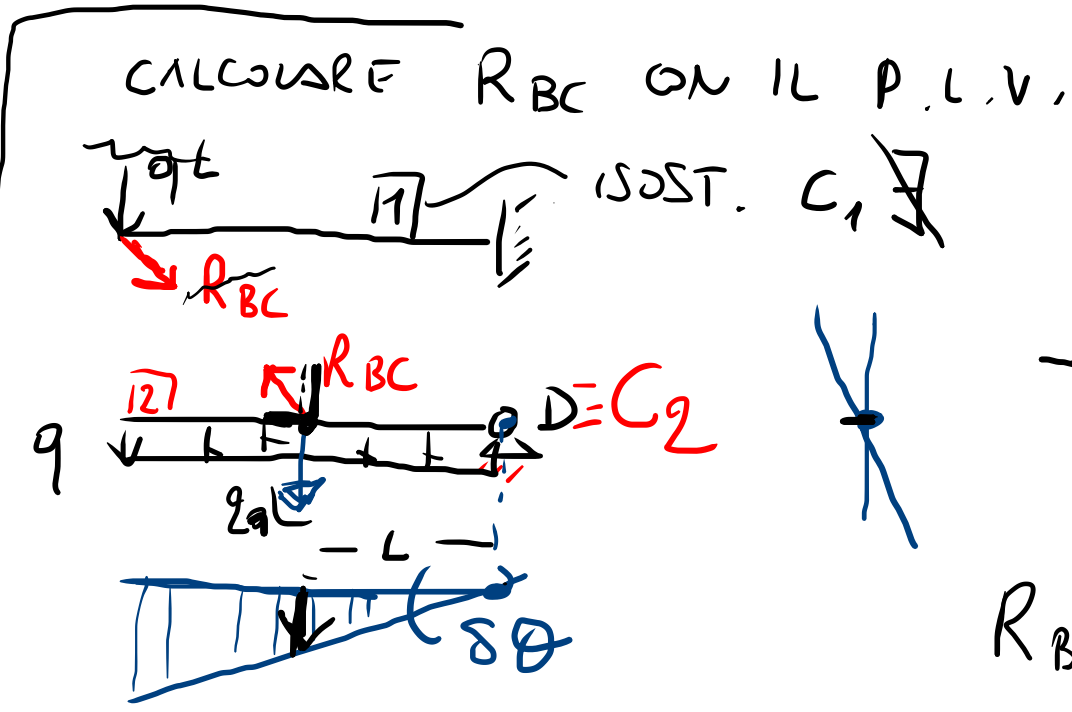 CALCOLARE R_BC CON IL P.L.V.
qL
[1]
ISOST. C₁ ∄
R_BC
[2]
R_BC
D≡C₂
q
2qL
L
δθ
R_B